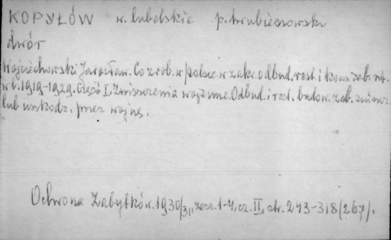 KOPYŁÓW w. lubelskie p. hrubieszowski
dwór
Wojciechowski Jarosław. Co zrob. w Polsce w zakr. odbud. rest. i kons. zab. szt.
w l. 1919-1929. Część I. Zniszczenia wojenne. Odbud. i rest. budow. zab. zniszcz.
lub uszkodz. przez wojnę.
Ochrona Zabytków. 1930/31, zesz. 1-4, cz. II, str. 243-318 (267).